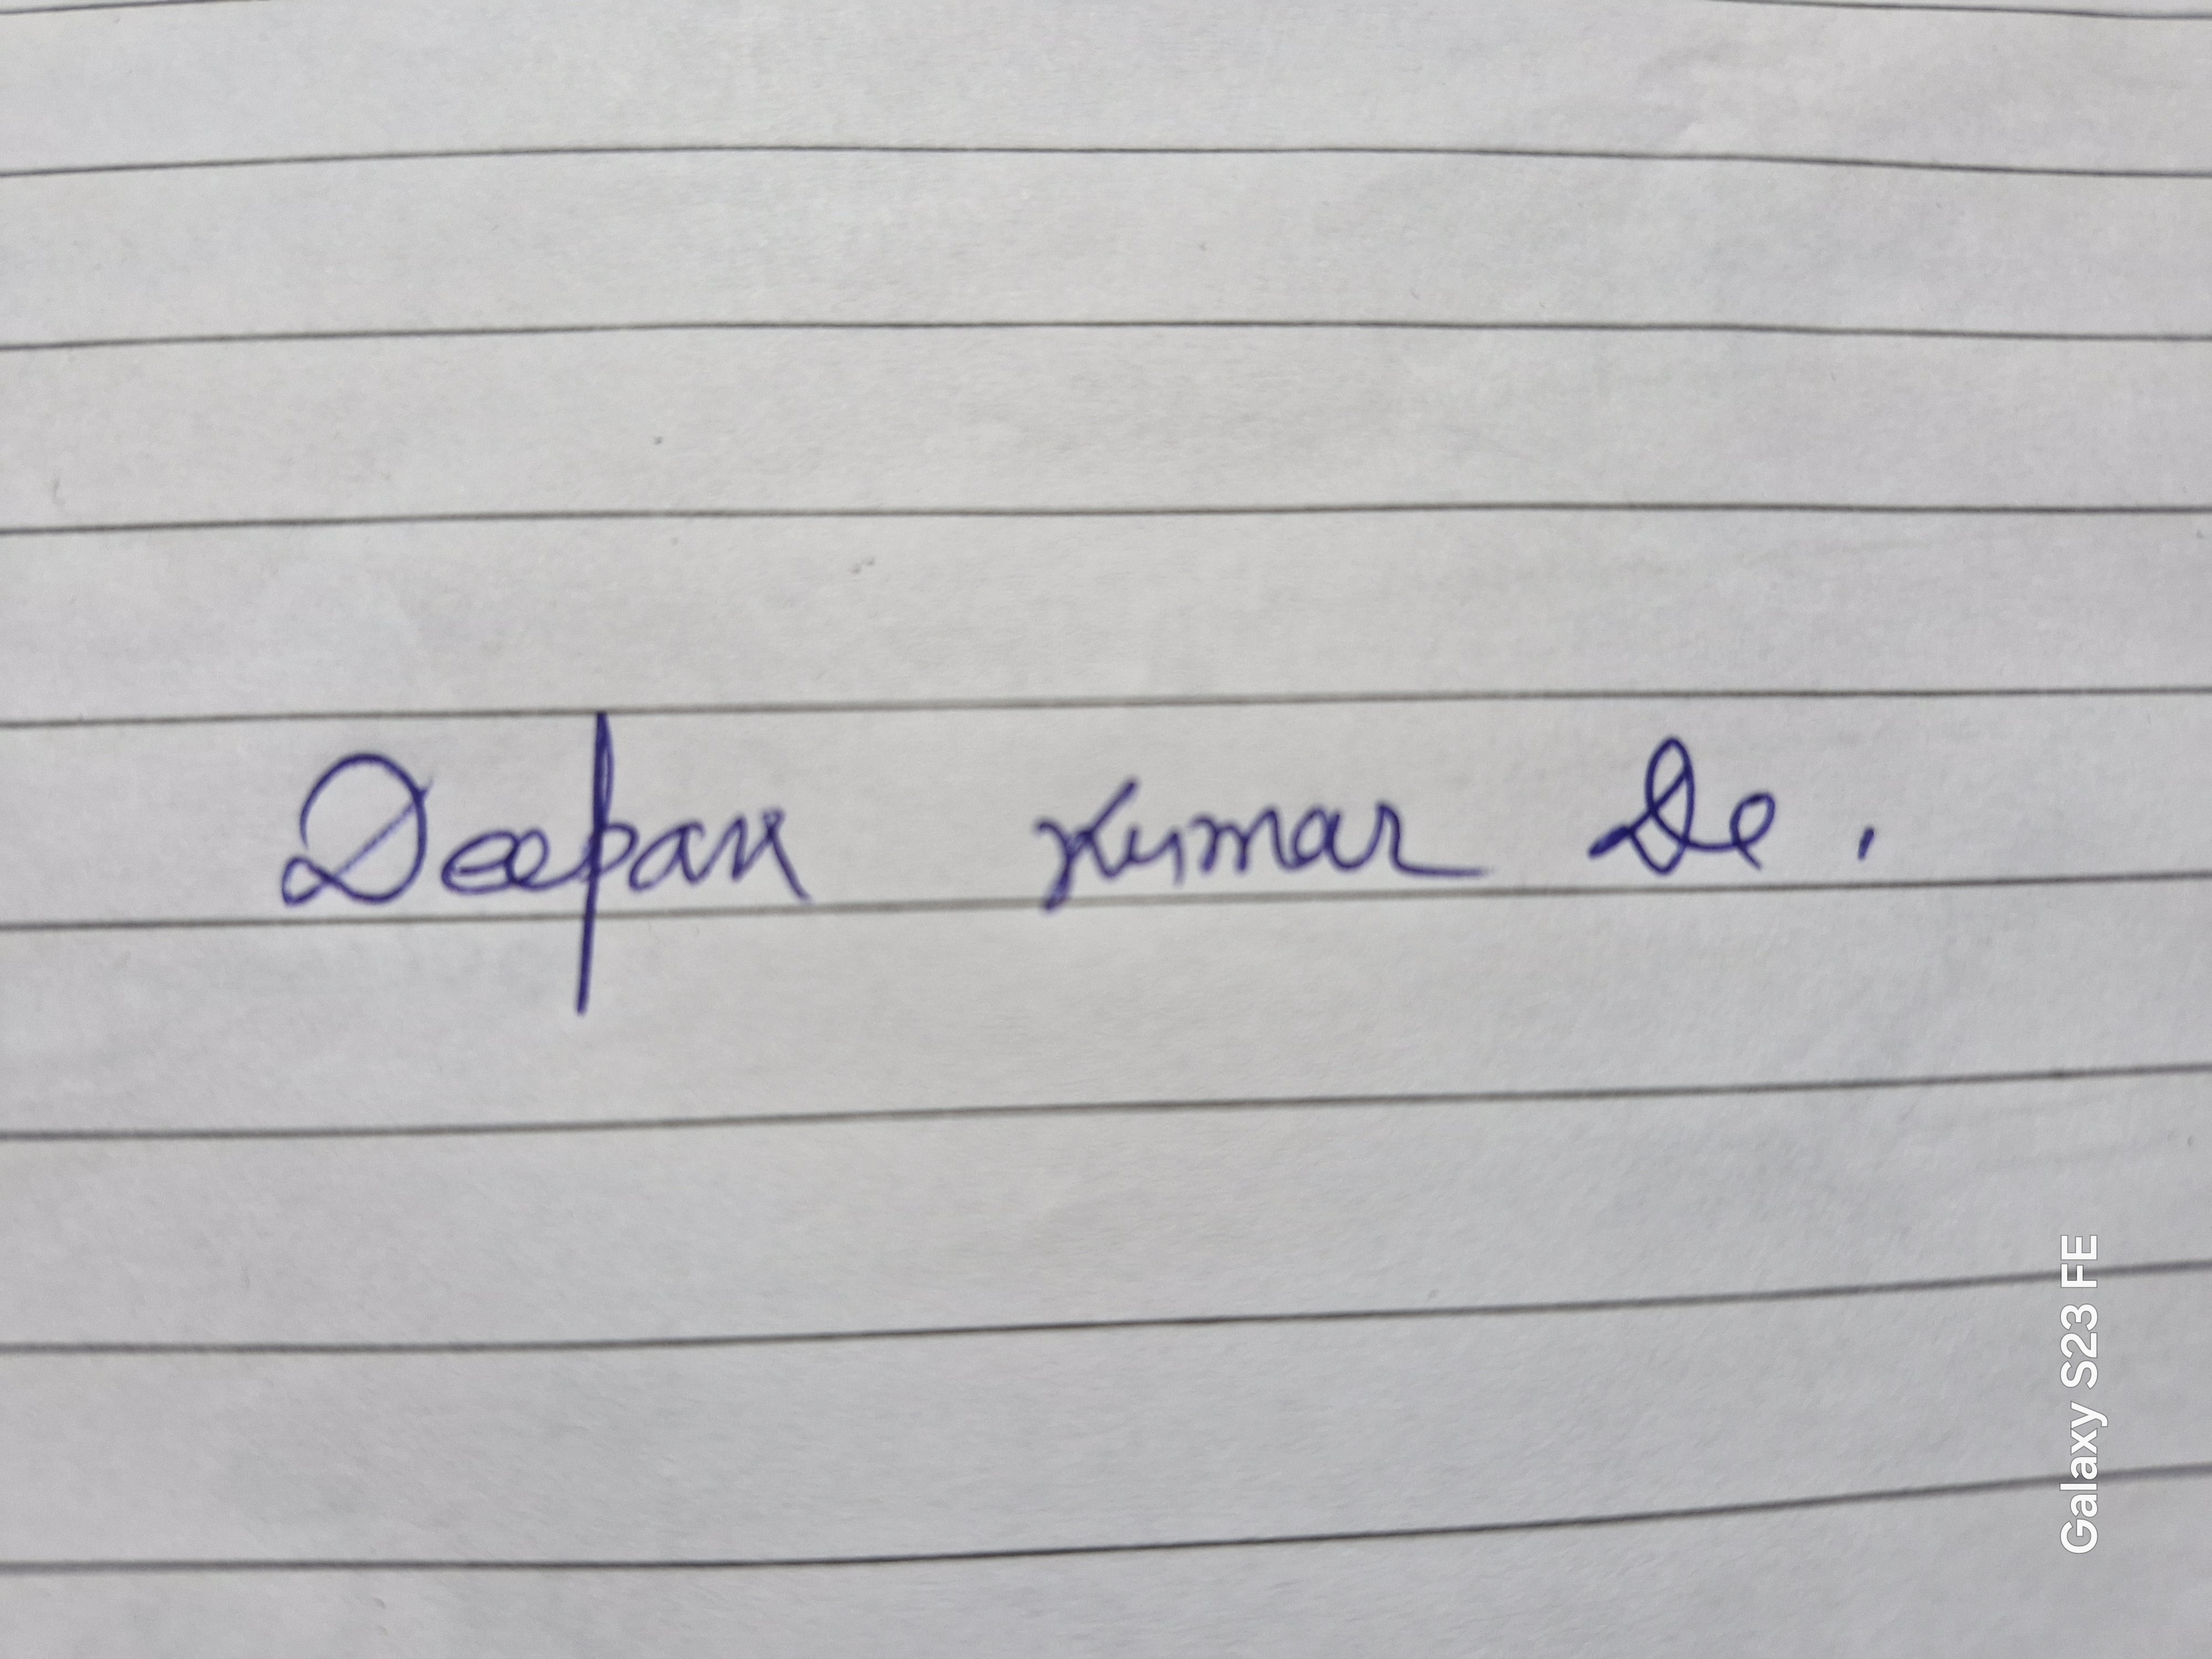 Deepak Kumar De.
Galaxy S23 FE